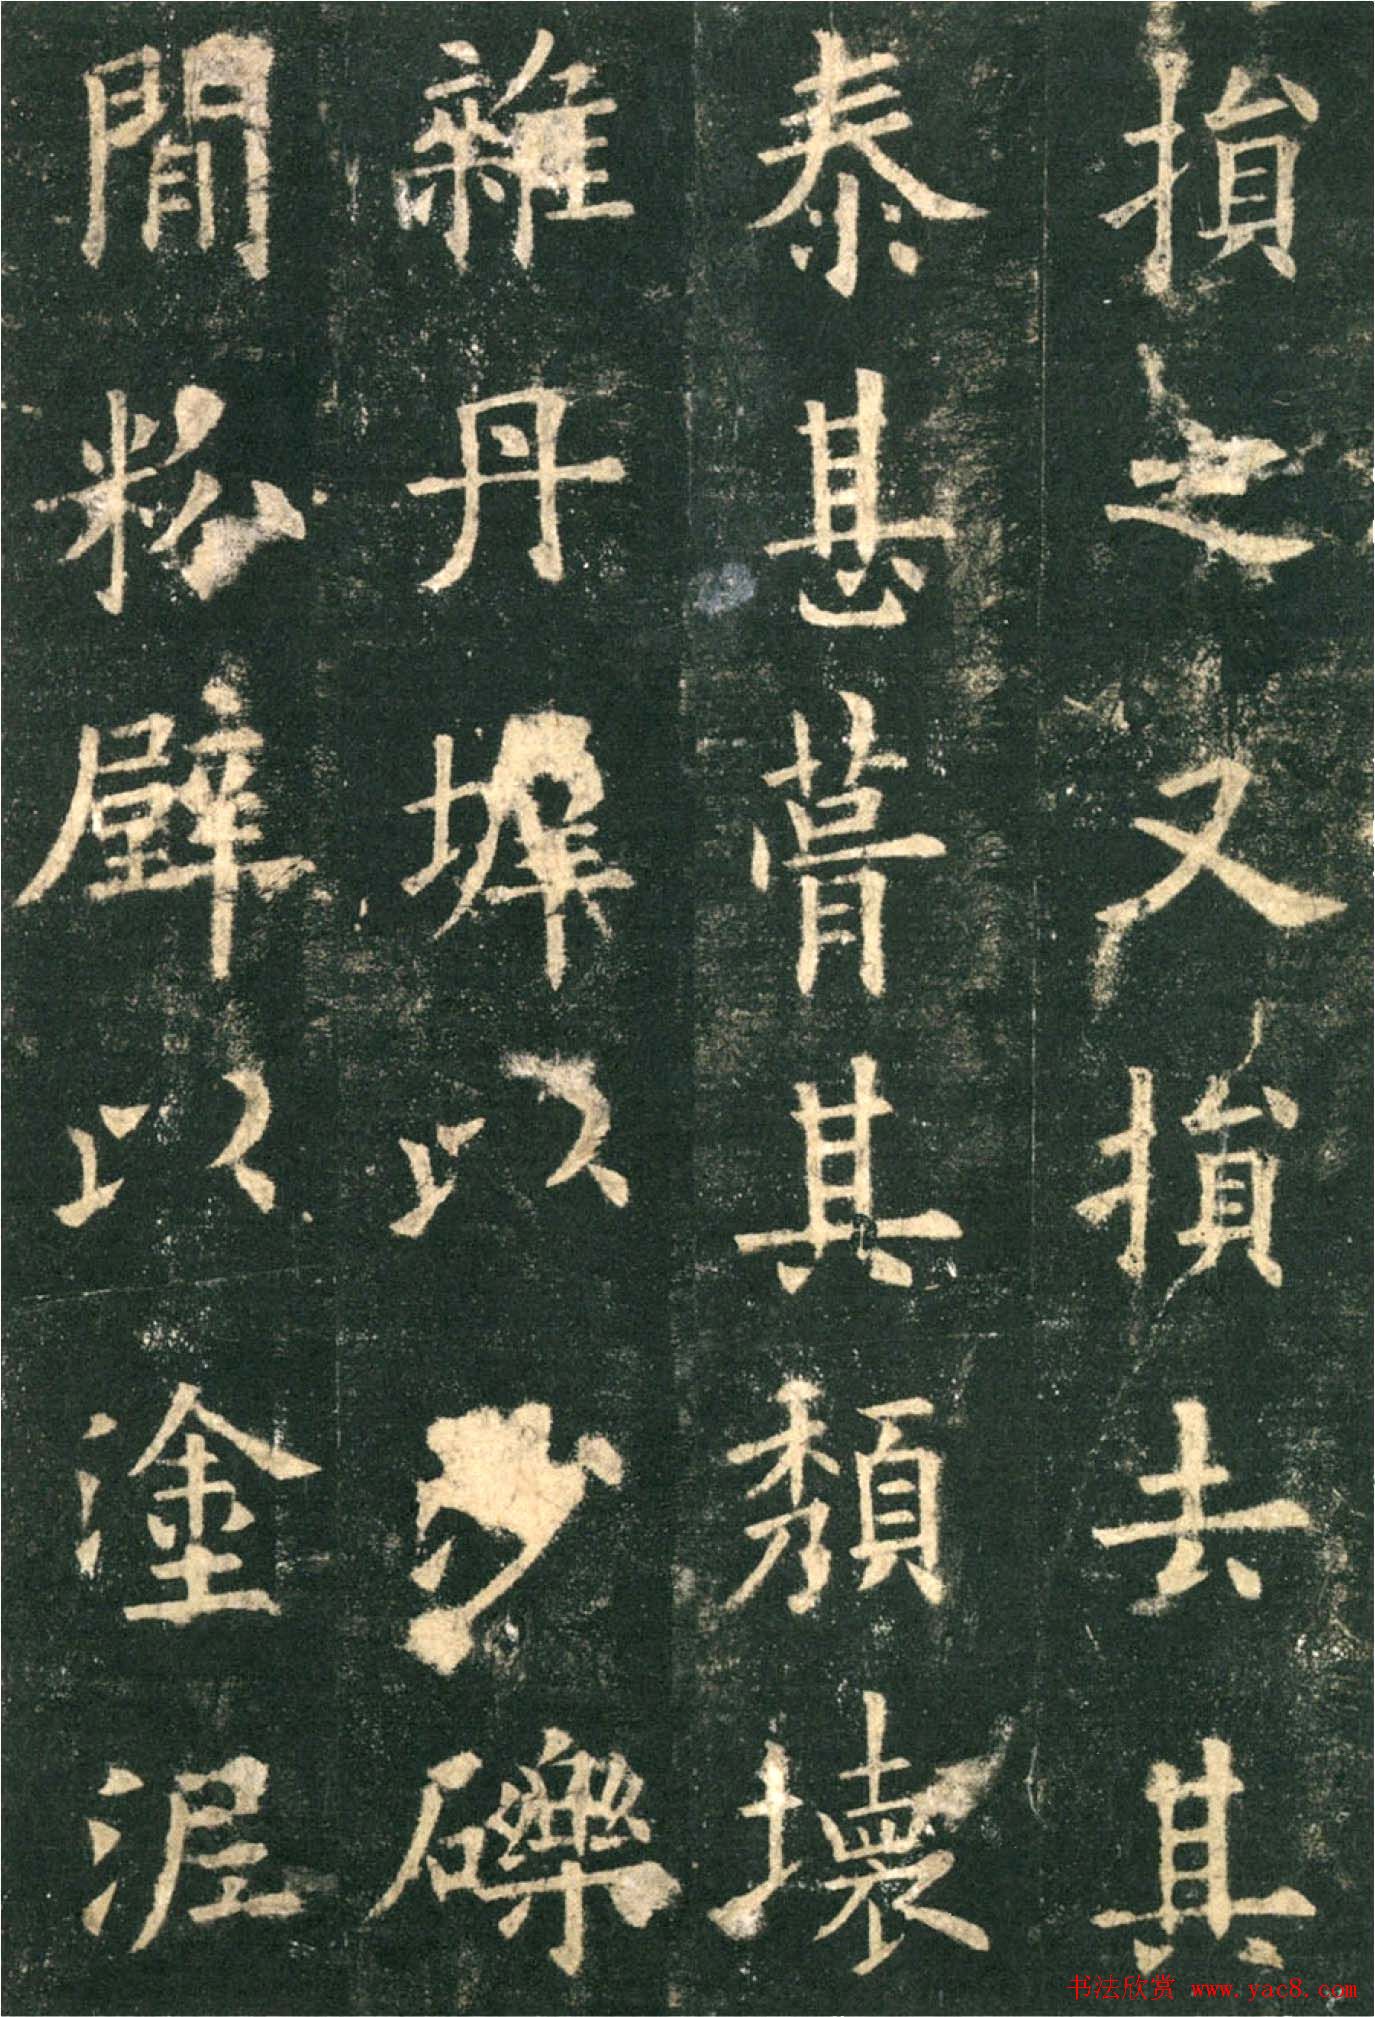 損之又損去其
泰甚葺其頽壞
雜丹墀以沙礫
間粉壁以塗泥
书法欣赏 www.yac8.com